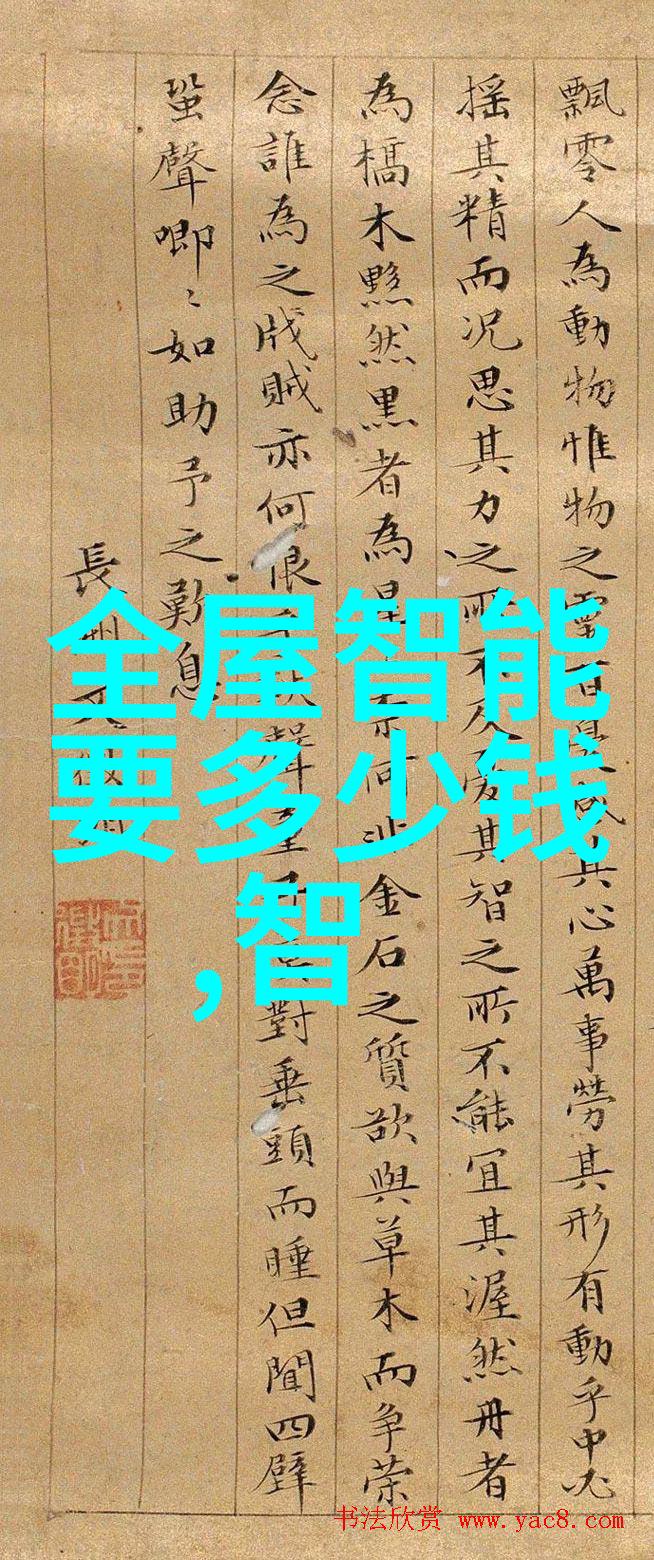 飄零人為動物惟物之靈百憂感其心萬事勞其形有動乎中必
搖其精而况思其力之所不及憂其智之所不能宜其渥然丹者
為橋木黟然黒者為星奈何非金石之質欲與草木而争榮
念誰為之戕賊亦何恨聲童對垂頭而睡但聞四壁
蛩聲唧〻如助予之歎息
長洲文徵明
全屋智能
要多少钱
,智
书法欣赏 www.yac8.com